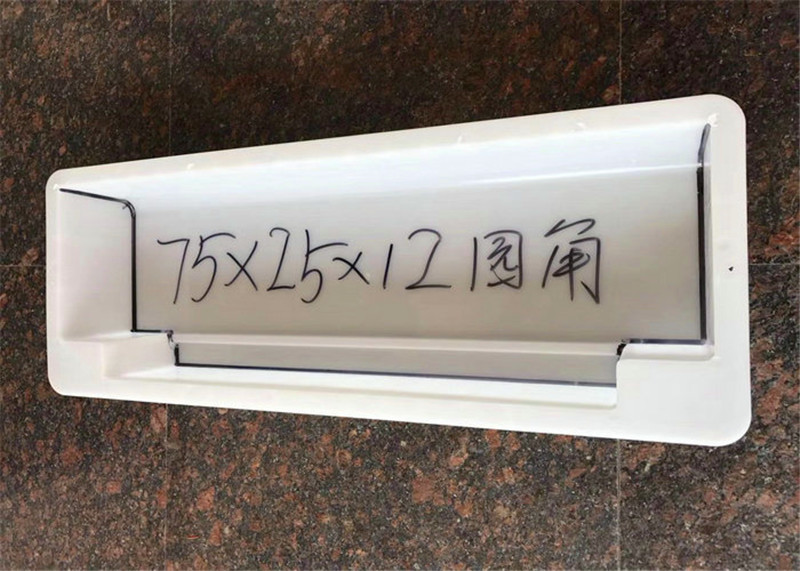 75×25×12圆角